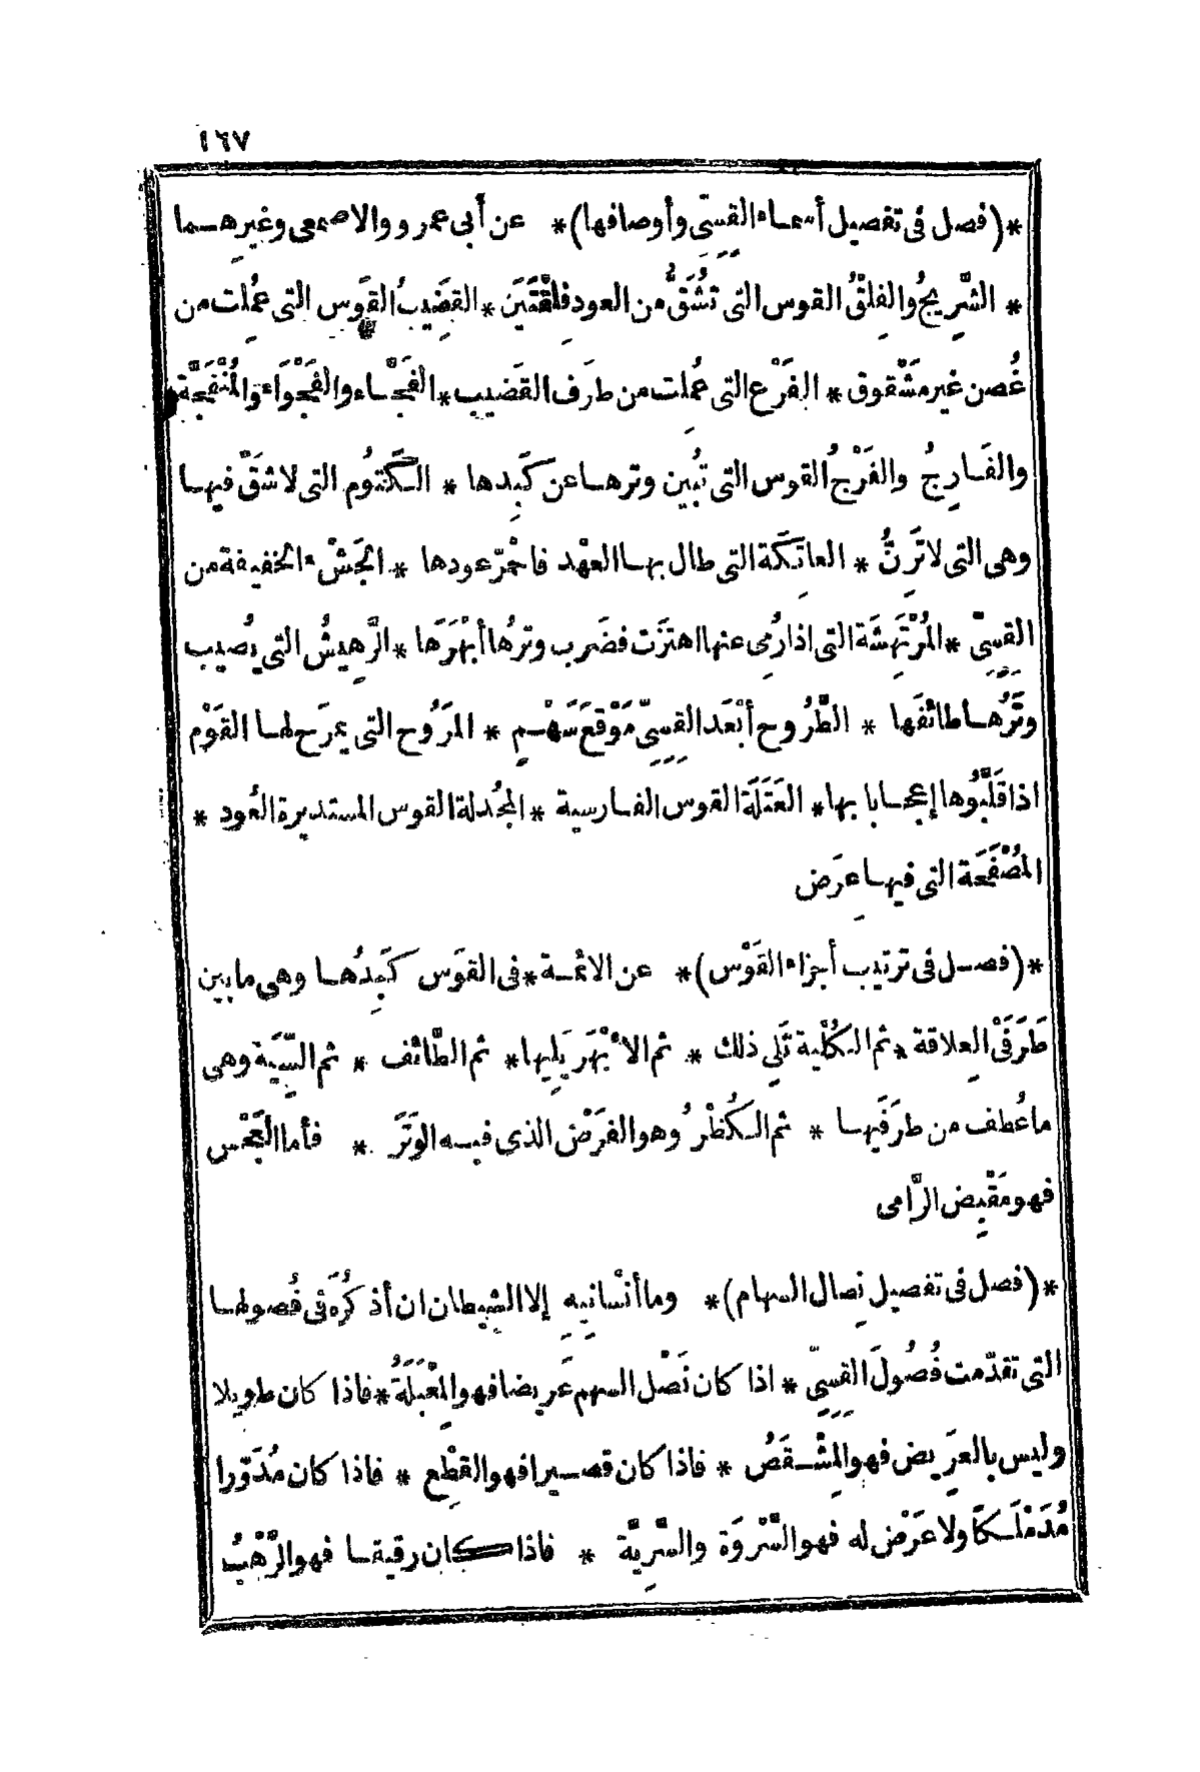 ١٦٧
*(فصل فى تفصيل أسماء القِسِىّ وأوصافها)* عن أبى عمرو والاصمعى وغيرِهـما
* الشَّرِيجُ والفِلْقُ القوس التى تُشَقُّ من العود فِلْقَتَيْن * القَضِيبُ القَوس التى عُمِلت من
غُصن غير مَشْقوق * الفَرْع التى عُمِلت من طرَف القَضيب * الفَجَّاء والفَجْوَاء والمُنْفَجَّة
والفَارِجُ والفَرْجُ القوس التى تُبين وترهـا عن كَبِدها * الكَتوُم التى لا شَقَّ فيهـا
وهى التى لا تَرِنُّ * العاتِكَة التى طال بهـا العهْد فاحْمَرّ عودها * الجَشْء الخفيفة من
القِسِىّ * المُرْتَهِشَة التى اذا رُمِى عنها اهتزّت فضَرب وترُها أبْهَرَها * الرَّهِيشُ التى يُصيب
وتَرُهـا طائفَها * الطَّرُوح أبْعَد القِسِىّ مَوْقِعَ سَهْـمٍ * المَرُوح التى يمرَح لهـا القَوْم
اذا قَلَّبُوها إعجـابا بها * العَتَلَة القوس الفـارسية * المُجْدَلة القوس المستديرة العُود *
المُصْفَحَة التى فيهـا عِرَض
*(فصـل فى ترتيب أجزاء القَوْس)* عن الائمـة * فى القوَس كَبِدُهـا وهى ما بين
طَرَفَىْ العِلاقة * ثم الكُلْية تَلِى ذلك * ثم الأبْهَر يَلِيها * ثم الطَّائف * ثم السِّيَة وهى
ما عُطف من طرَفَيهـا * ثم الكُظْرُ وهو الفَرْض الذى فيـه الوَتَرَ * فأما العَجْس
فهو مَقْبِض الرَّامى
*(فصل فى تفصيل نِصال السهام)* وما أنْسانِيِه إلا الشيطان ان أذكُرَه فى فُصولهـا
التى تقدّمت فُصُولَ القِسِىّ * اذا كان نَصْل السهم عَريضا فهو المِعْبَلَةُ * فاذا كان طويلا
وليس بالعرَيض فهو المِشْـقَصُ * فاذا كان قصـيرا فهو القِطْع * فاذا كان مُدَوّرا
مُدَمْلَـكًا ولا عَرْض له فهو السَّرْوَة والسَّرِيَّة * فاذا كان رقيقـا فهو الرَّهْبُ